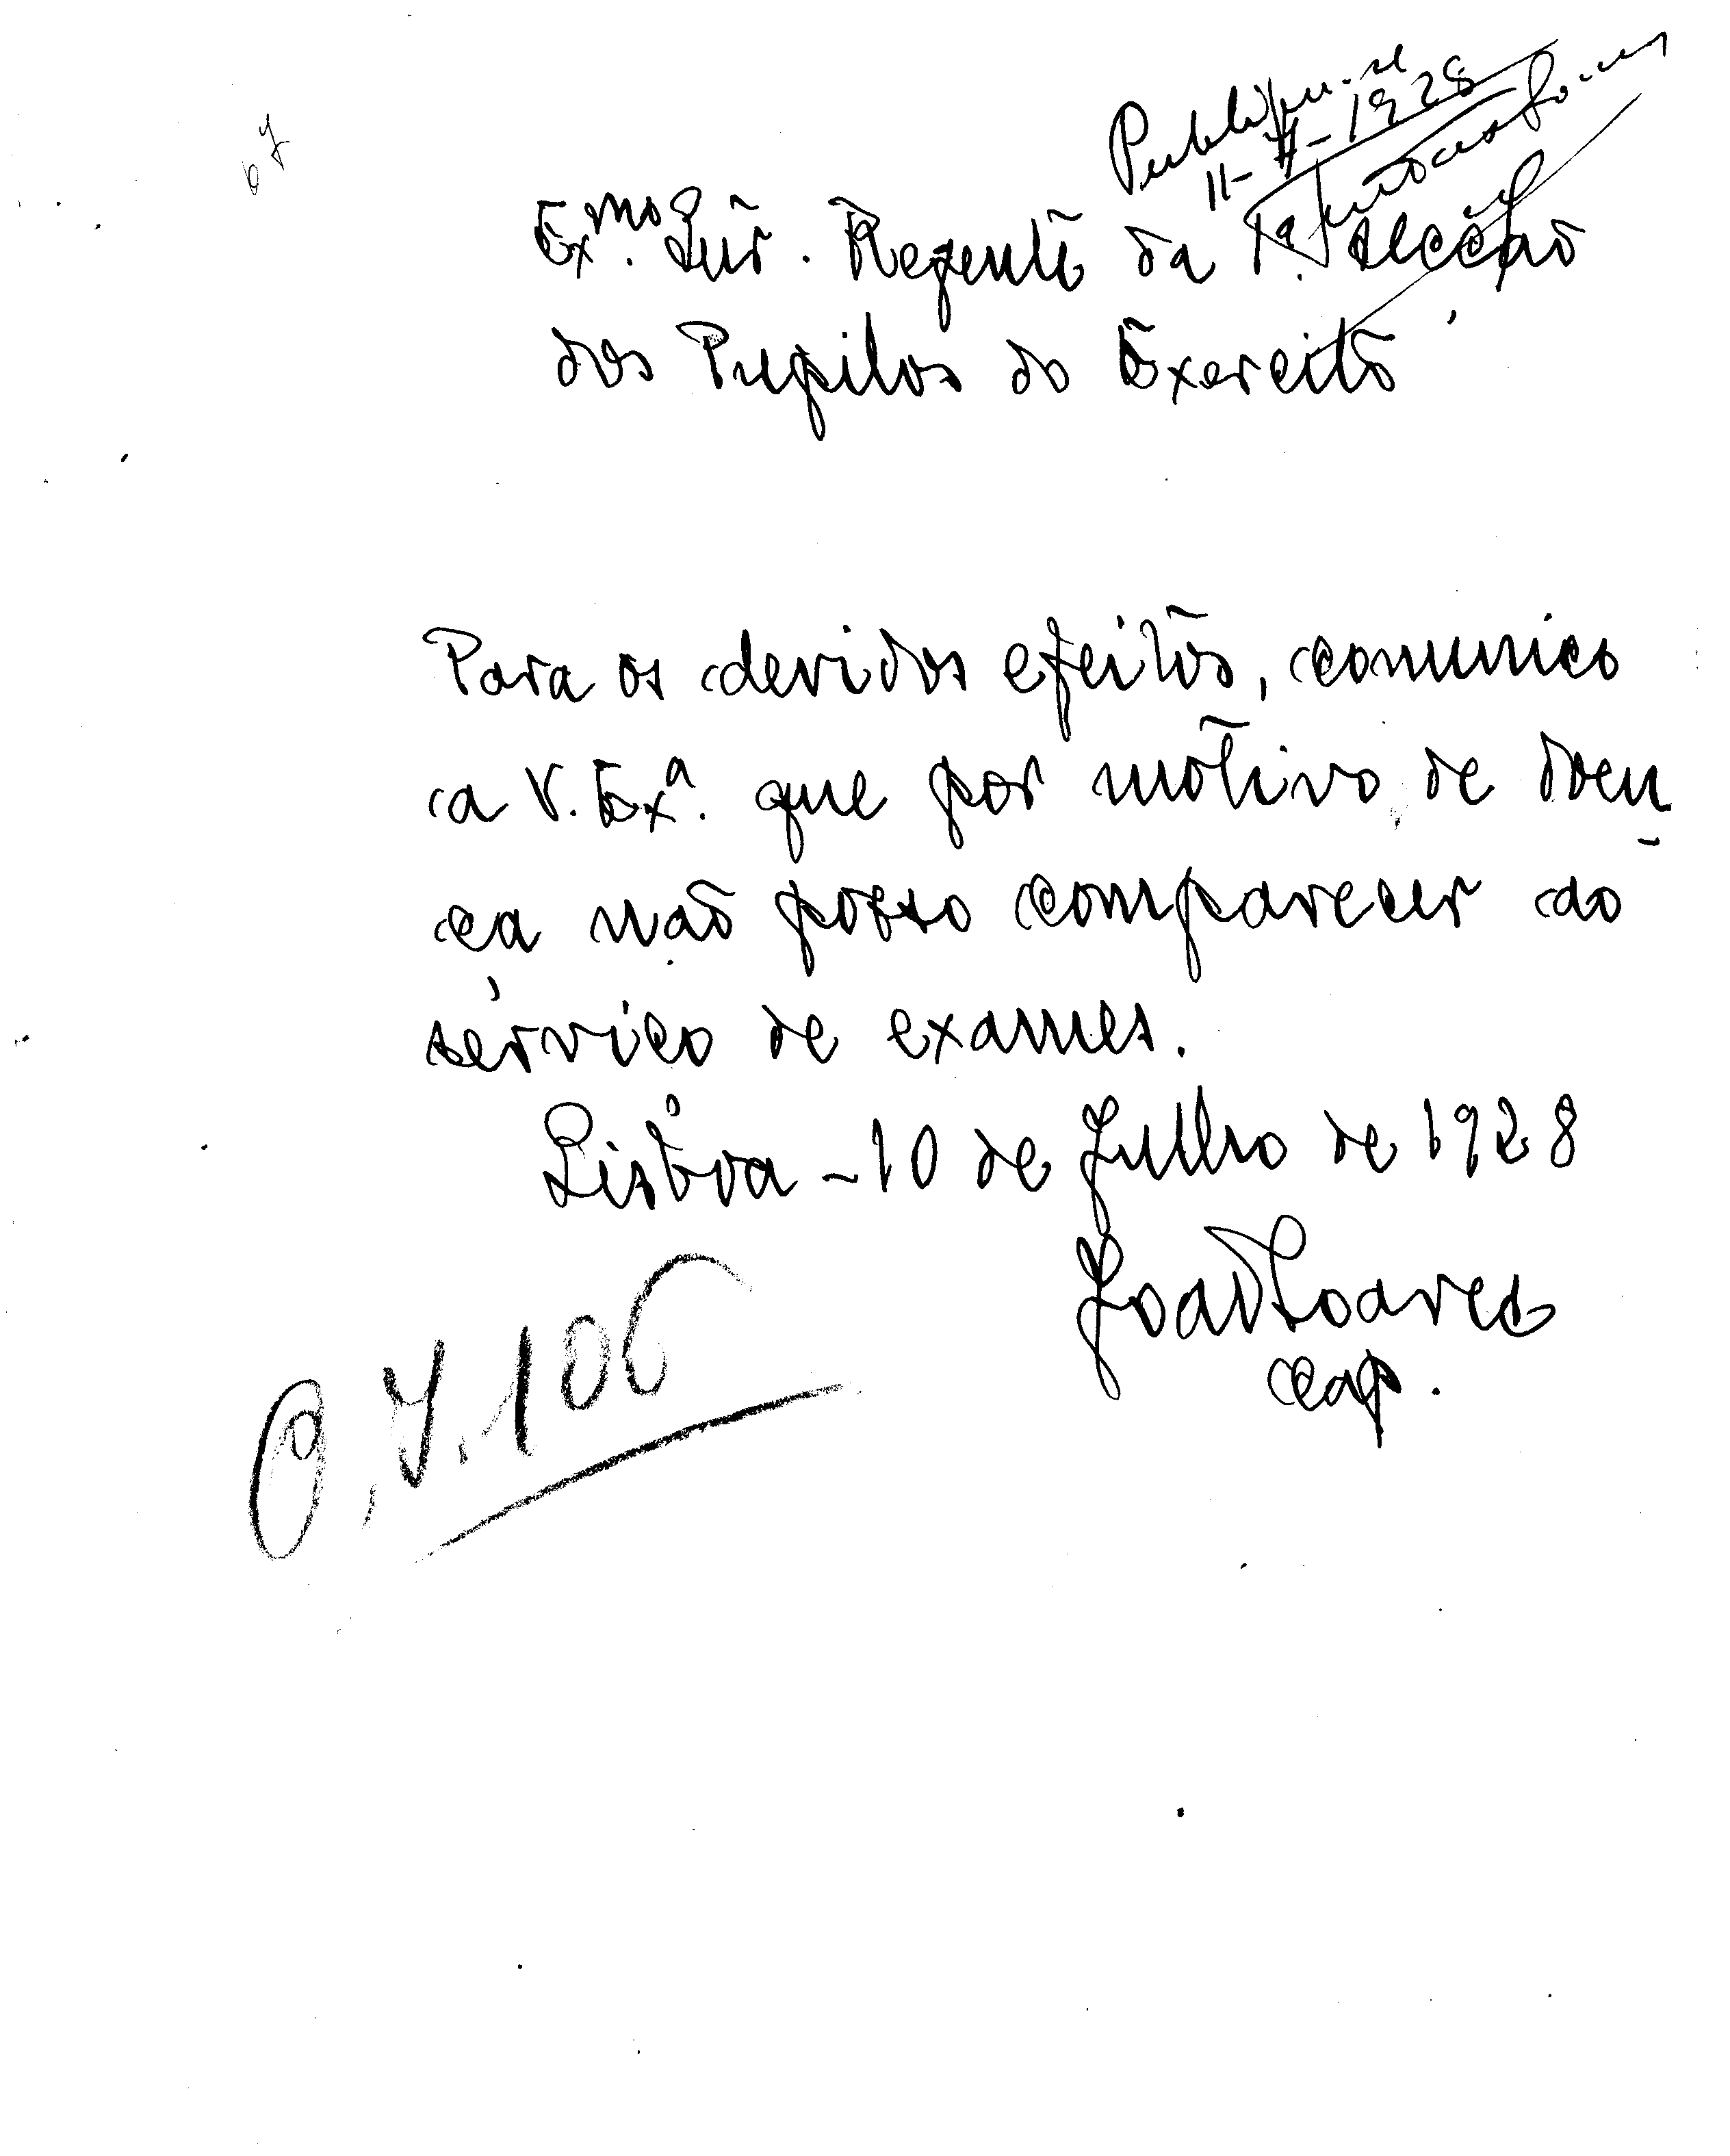 Publique-se
11-7-1928
67
Exmo. Snr. Regente da 1a. secção
dos Pupilos do Exercito
Para os devidos efeitos, comunico
a V. Exa. que por motivo de doen-
ca não posso comparecer ao
serviço de exames.
Lisboa - 10 de Julho de 1928
João Soares
cap.
O. 7. 106